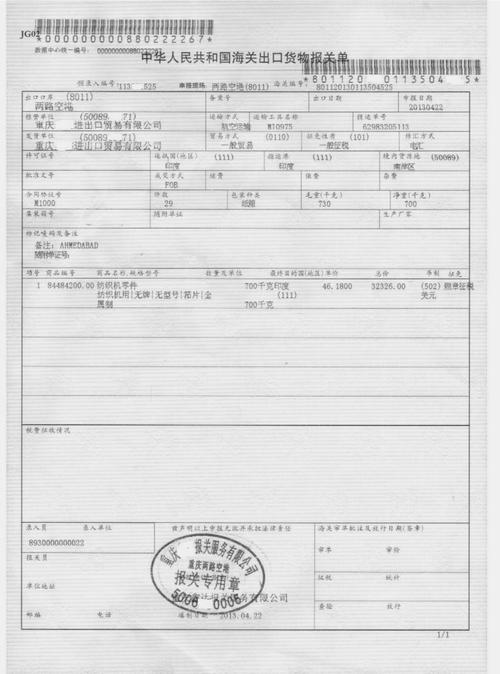 JG02
*000000000880222267*
数据中心统一编号: 000000000880222267
中华人民共和国海关出口货物报关单
预录入编号: 113 .525 申报现场: 两路空港(8011) 海关编号: 801120130113504525
出口口岸 (8011) 备案号 出口日期 申报日期
两路空港 20130422
经营单位 (50089 71) 运输方式 运输工具名称 提运单号
重庆 进出口贸易有限公司 航空运输 M10975 62983205113
发货单位 (50089 71) 贸易方式 (0110) 征免性质 (101) 结汇方式
重庆 进出口贸易有限公司 一般贸易 一般征税 电汇
许可证号 运抵国(地区) (111) 指运港 (111) 境内货源地 (50089)
印度 印度 南岸区
批准文号 成交方式 运费 保费 杂费
FOB
合同协议号 件数 包装种类 毛重(千克) 净重(千克)
M1000 29 纸箱 730 700
集装箱号 随附单证 生产厂家
标记唛码及备注
备注: AHMEDABAD
随附单证号:
项号 商品编号 商品名称,规格型号 数量及单位 最终目的国(地区)单价 总价 币制 征免
1 84484200.00 纺织机零件 700千克印度 46.1800 32326.00 (502) 照章征税
纺织机用|无牌|无型号|筘片|金 (111) 美元
属制 700千克
税费征收情况
录入员 录入单位 兹声明以上申报无讹并承担法律责任 海关审单批注及放行日期(签章)
8930000000022
报关员 审单 审价
重庆 报关服务有限公司
重庆两路空港
报关专用章
5006 0006
征税 统计
单位地址 报关服务有限公司
查验 放行
邮编 电话 填制日期 2013.04.22
1/1